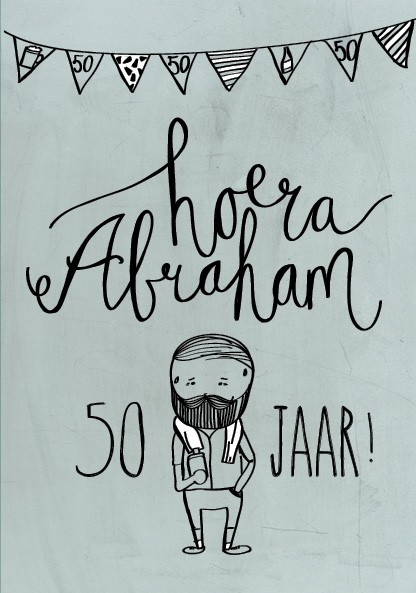 50 50 50
hoera
Abraham
50 JAAR!